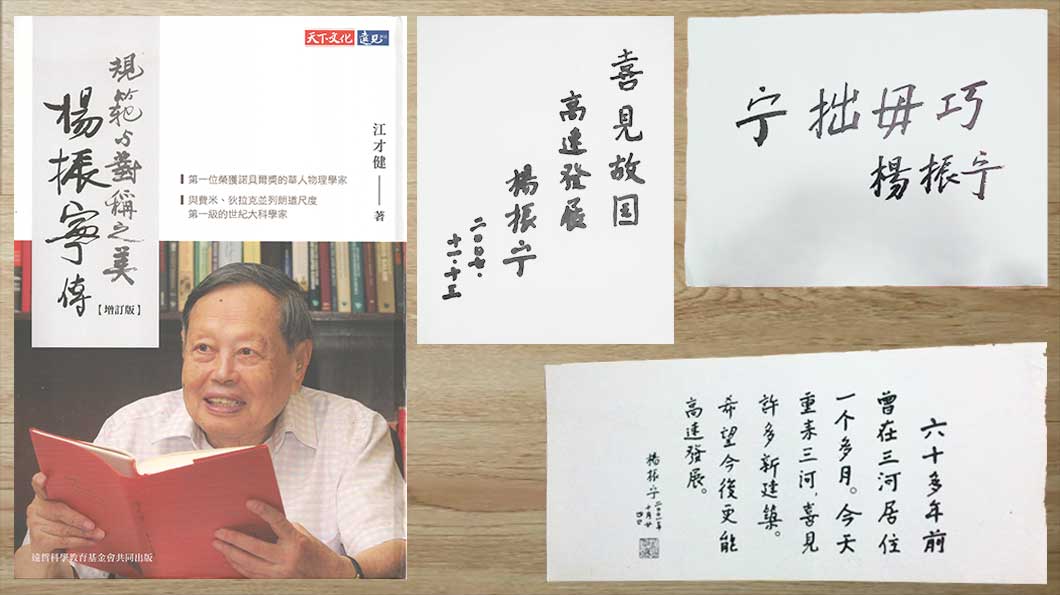 天下文化
遠見
規範與對稱之美
楊振寧傳
【增訂版】
江才健
著
第一位榮獲諾貝爾獎的華人物理學家
與費米、狄拉克並列朗道尺度
第一級的世紀大科學家
遠哲科學教育基金會共同出版
喜見故国
高速發展
楊振宁
二〇〇七.
十一.十三
宁拙毋巧
楊振宁
六十多年前
曾在三河居住
一个多月。今天
重来三河,喜見
許多新建築。
希望今後更能
高速發展。
楊振宁